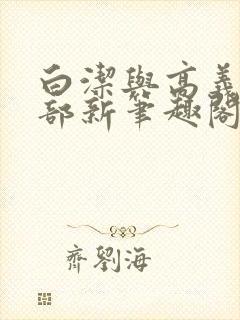 白潔與高義
部新筆趣閣
齊劉海